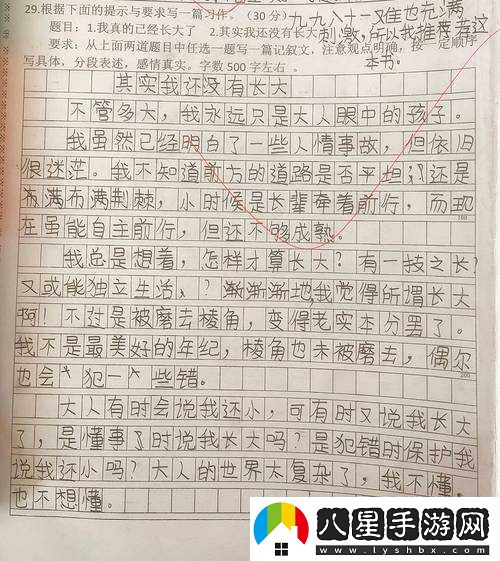 29.根据下面的提示与要求写一篇习作。（30分）
九九八十一难也充满
题目：1.我真的已经长大了 2.其实我还没有长大
刺激，所以我推荐看这
本书。
要求：从上面两道题目中任选一题写一篇记叙文，注意观点明确，按一定顺序
写具体，分段表述，感情真实。字数500字左右。
其实我还没有长大
不管多大，我永远只是大人眼中的孩子。
我虽然已经明白了一些人情事故，但依旧
很迷茫。我不知道前方的道路是否平坦，还是
布满布满荆棘，小时候是长辈牵着前行，而现
在虽能自主前行，但还不够成熟。
100
我总是想着，怎样才算长大？有一技之长？
又或能独立生活、？渐渐渐地，我觉得所谓长大
啊！不过是被磨去棱角，变得老实本分罢了。
我不是最美好的年纪，棱角也未被磨去，偶尔
也会犯一些错。
200
大人有时会说我还小，可有时又说我长大
了，是懂事了时说我长大吗？是犯错时保护我
说我还小吗？大人的世界太复杂了，我不懂。
也不想懂。
八星手游网
www.lyshbx.com